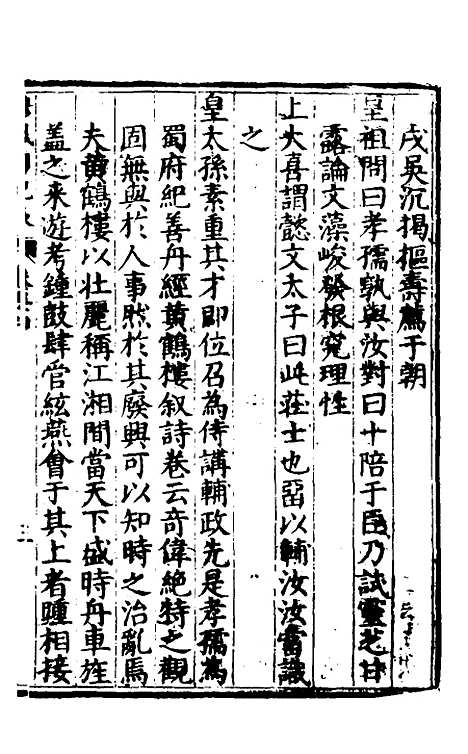 戌吳沉揭樞壽薦于朝
皇祖問曰孝孺孰與汝對曰十陪于臣乃試靈芝甘
露論文藻峻發根究理性
上大喜謂懿文太子曰此莊士也畱以輔汝汝當識
之
皇太孫素重其才即位召為侍講輔政先是孝孺為
蜀府紀善舟經黄鶴樓叙詩卷云奇偉絶特之觀
固無與於人事然於其廢興可以知時之治亂焉
夫黄鶴樓以壯麗稱江湘間當天下盛時舟車旌
蓋之来遊考鍾鼓肆管絃燕會于其上者踵相接